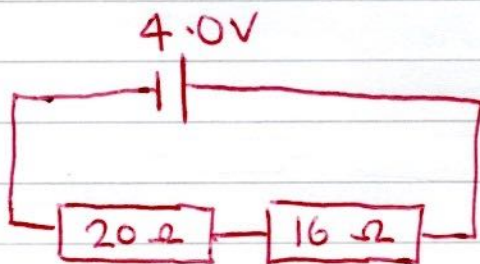 4.0V
20 Ω 16 Ω